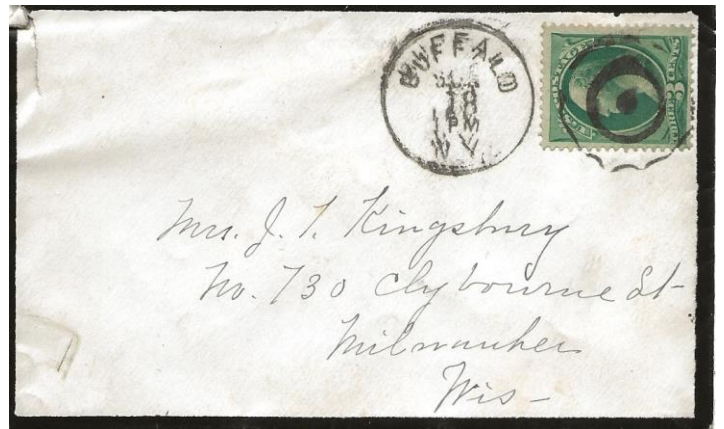 BUFFALO
18
1 PM
N.Y.
THREE 3 CENTS
Mrs. J. T. Kingsbury
No. 730 Clybourne St-
Milwaukee
Wis-